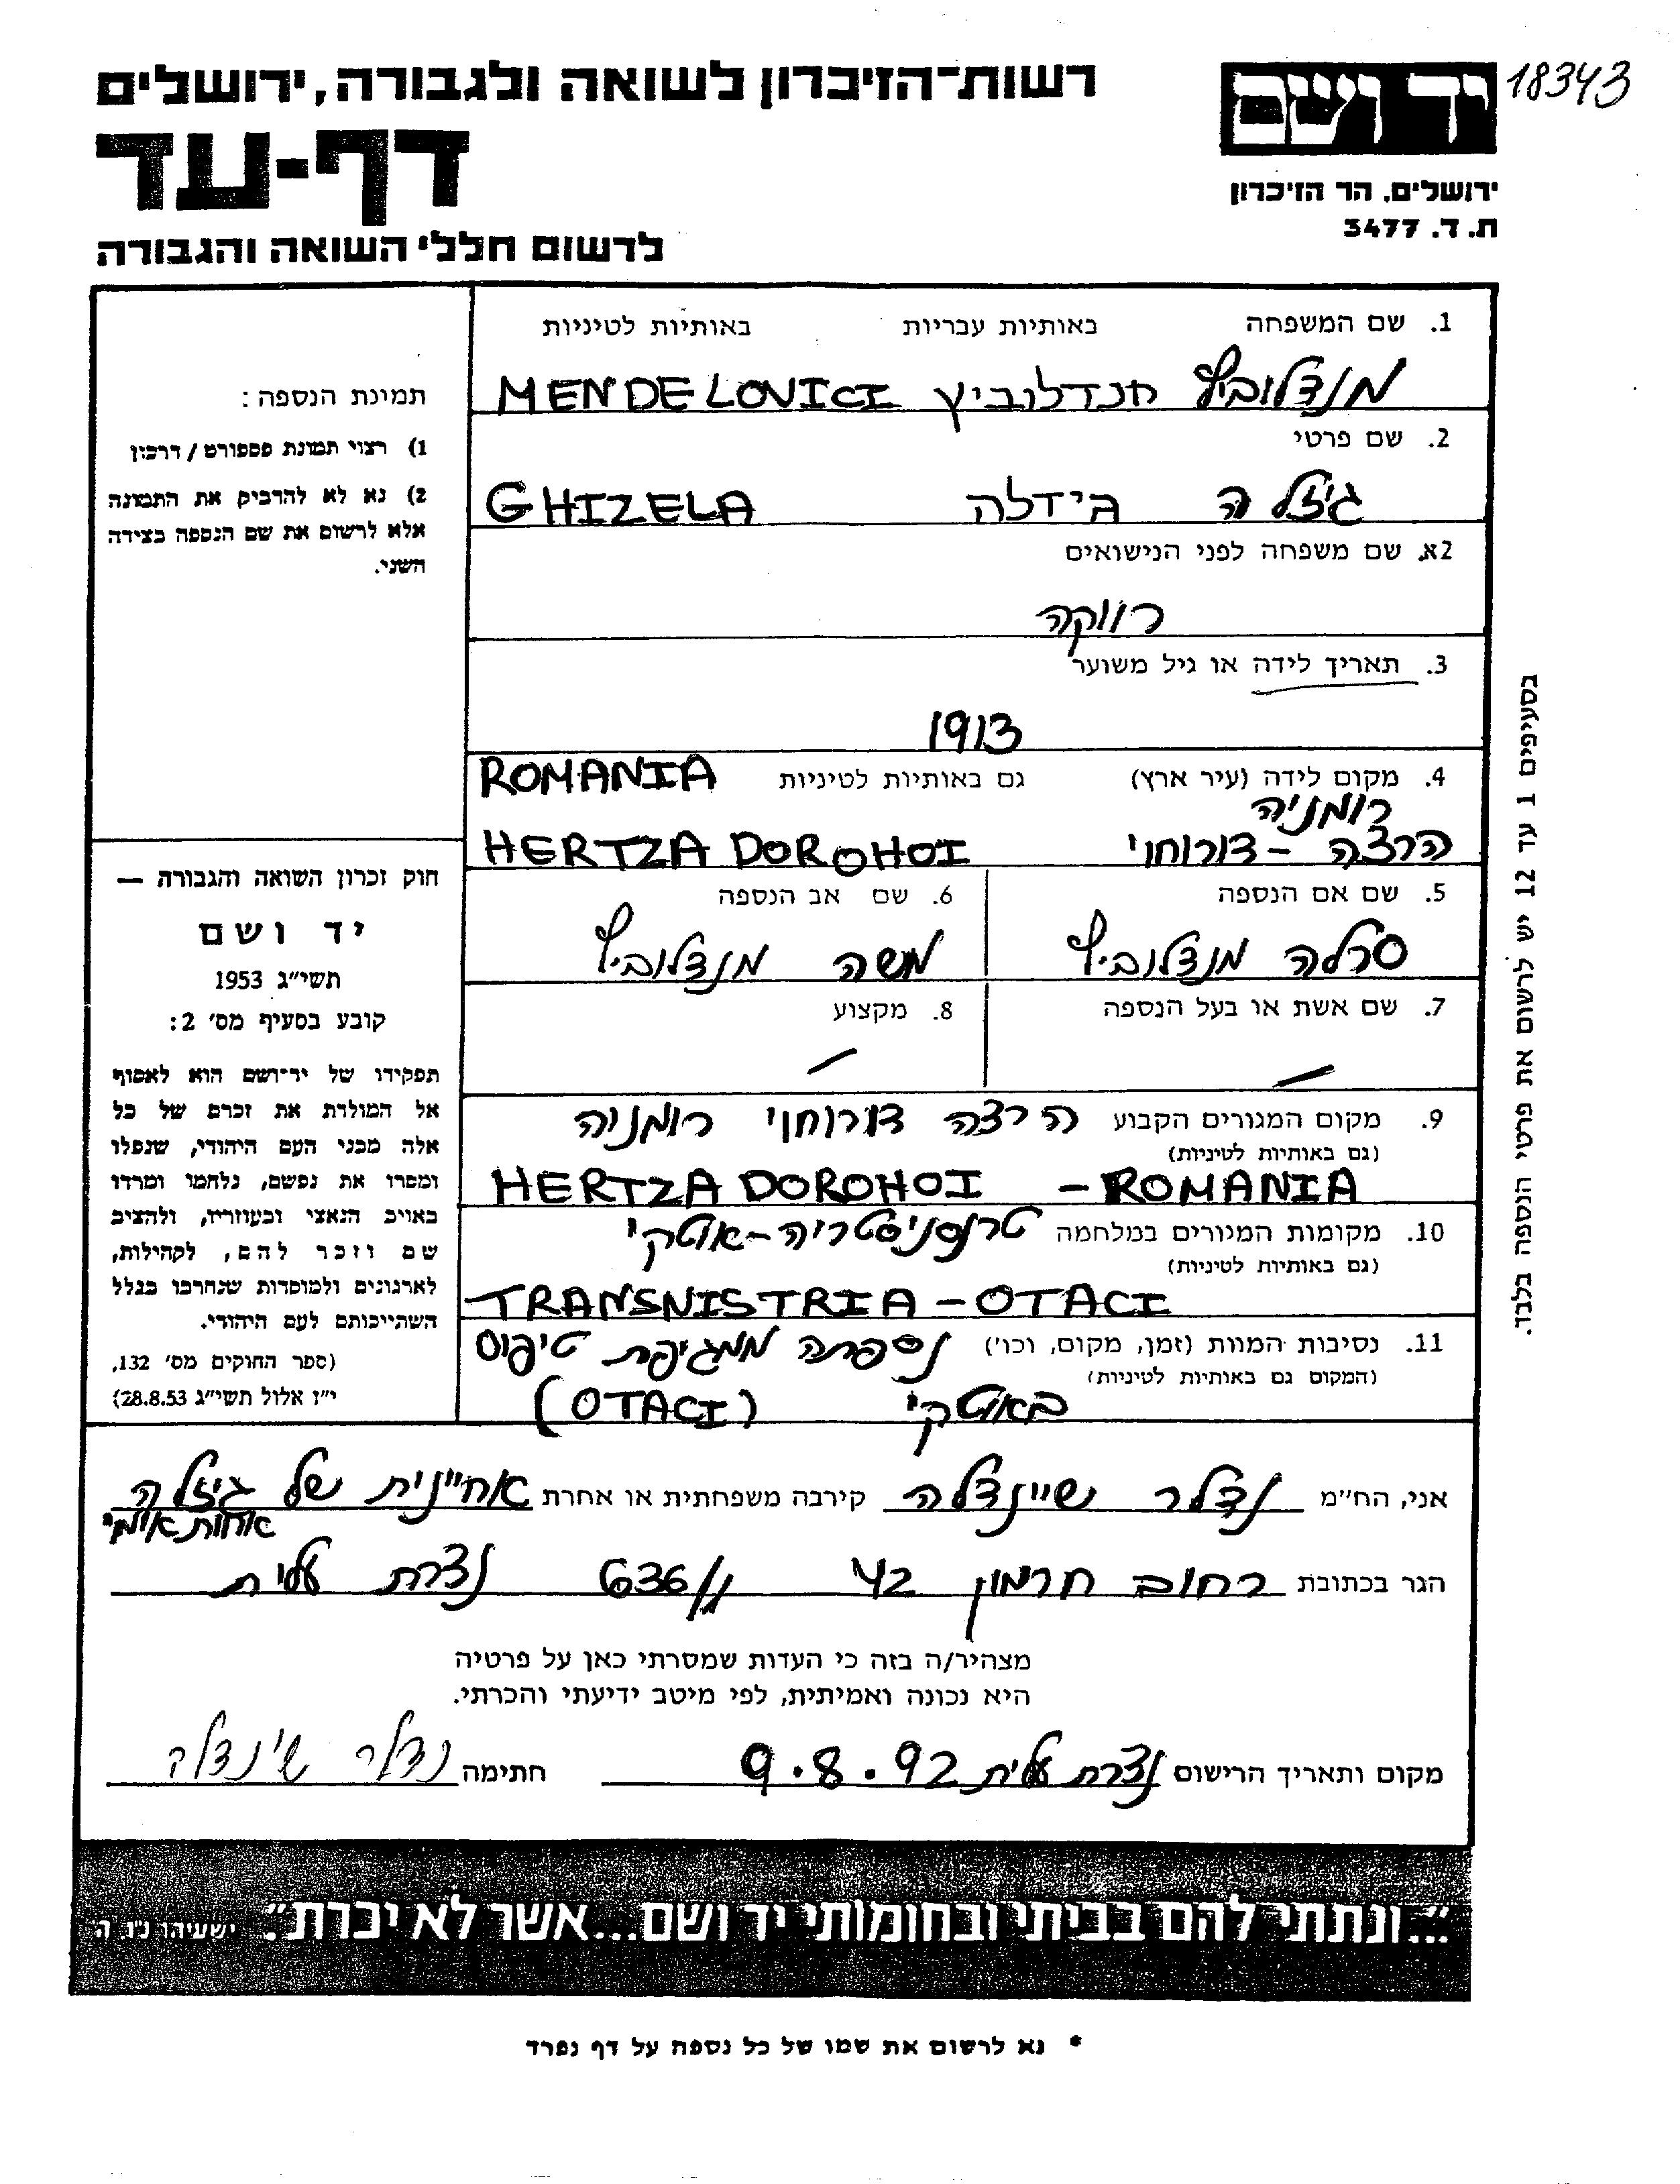 רשות-הזיכרון לשואה ולגבורה, ירושלים
דף-עד
לרשום חללי השואה והגבורה
יד ושם
18343
ירושלים, הר הזיכרון
ת. ד. 3477
1. שם המשפחה באותיות עבריות באותיות לטיניות
מנדלוביץ מנדלוביץ MENDELOVICI
2. שם פרטי
גיזלה גיזלה GHIZELA
2א. שם משפחה לפני הנישואים
רווקה
3. תאריך לידה או גיל משוער
1913
4. מקום לידה (עיר ארץ) גם באותיות לטיניות ROMANIA
רומניה
הרצה - דורוחוי HERTZA DOROHOI
5. שם אם הנספה 6. שם אב הנספה
סרלה מנדלוביץ משה מנדלוביץ
7. שם אשת או בעל הנספה 8. מקצוע
9. מקום המגורים הקבוע הרצה דורוחוי רומניה
(גם באותיות לטיניות)
HERTZA DOROHOI - ROMANIA
10. מקומות המגורים במלחמה טרנסניסטריה - אוטקי
(גם באותיות לטיניות)
TRANSNISTRIA - OTACI
11. נסיבות המוות (זמן, מקום, וכו') נספתה ממגיפת טיפוס
(המקום גם באותיות לטיניות)
באוטקי (OTACI)
תמונת הנספה:
1) רצוי תמונת פספורט / דרכון
2) נא לא להדביק את התמונה
אלא לרשום את שם הנספה בצידה
השני.
חוק זכרון השואה והגבורה —
יד ושם
תשי"ג 1953
קובע בסעיף מס' 2:
תפקידו של יד-ושם הוא לאסוף
אל המולדת את זכרם של כל
אלה מבני העם היהודי, שנפלו
ומסרו את נפשם, נלחמו ומרדו
באויב הנאצי ובעוזריו, ולהציב
שם וזכר להם, לקהילות,
לארגונים ולמוסדות שנחרבו בגלל
השתייכותם לעם היהודי.
(ספר החוקים מס' 132,
י"ז אלול תשי"ג 28.8.53)
בסעיפים 1 עד 12 יש לרשום את פרטי הנספה בלבד.
אני, הח"מ נדלר שיינדלה קירבה משפחתית או אחרת אחיינית של גיזלה
אחות אימי
הגר בכתובת רחוב חרמון 42 נצרת עלית
מצהיר/ה בזה כי העדות שמסרתי כאן על פרטיה
היא נכונה ואמיתית, לפי מיטב ידיעתי והכרתי.
מקום ותאריך הרישום נצרת עלית 9.8.92 חתימה נדלר שינדלה
"...ונתתי להם בביתי ובחומותי יד ושם...אשר לא יכרת". ישעיהו נ"ו ה'
* נא לרשום את שמו של כל נספה על דף נפרד